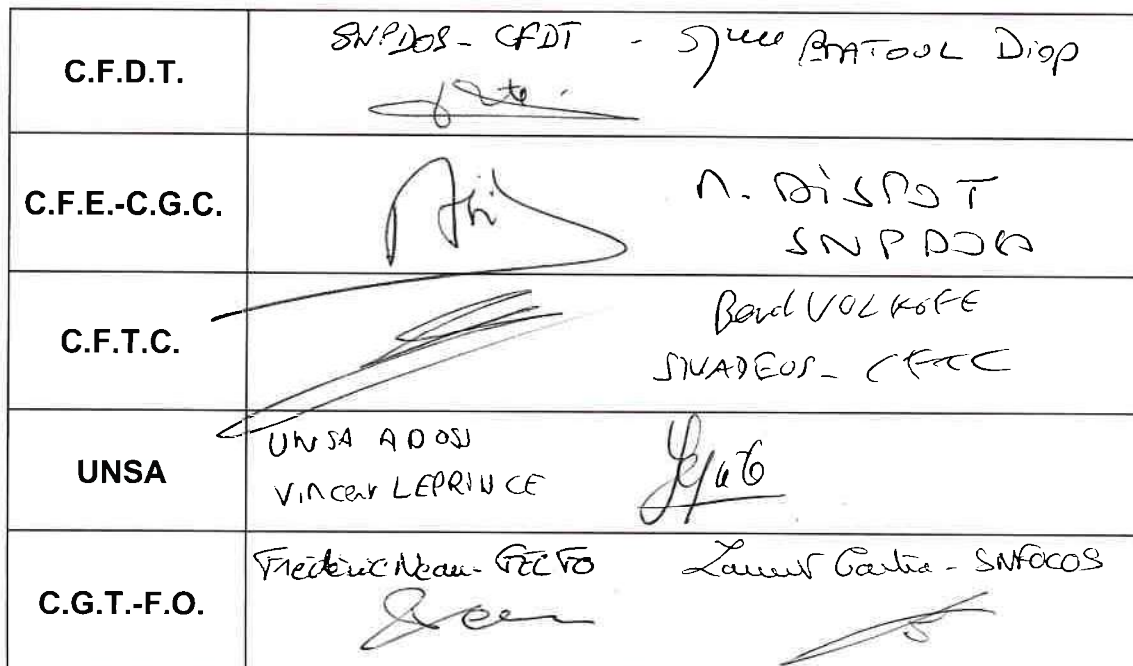 C.F.D.T.
SNPDOS - CFDT - Mme BATOUL Diop
C.F.E.-C.G.C.
M. DISPOT
SNPDOS
C.F.T.C.
VOLKOFF
SNADEOS - CFTC
UNSA
UNSA ADOSI
Vincent LEPRINCE
C.G.T.-F.O.
Frédéric Neau - FECFO Laurent - SNFOCOS